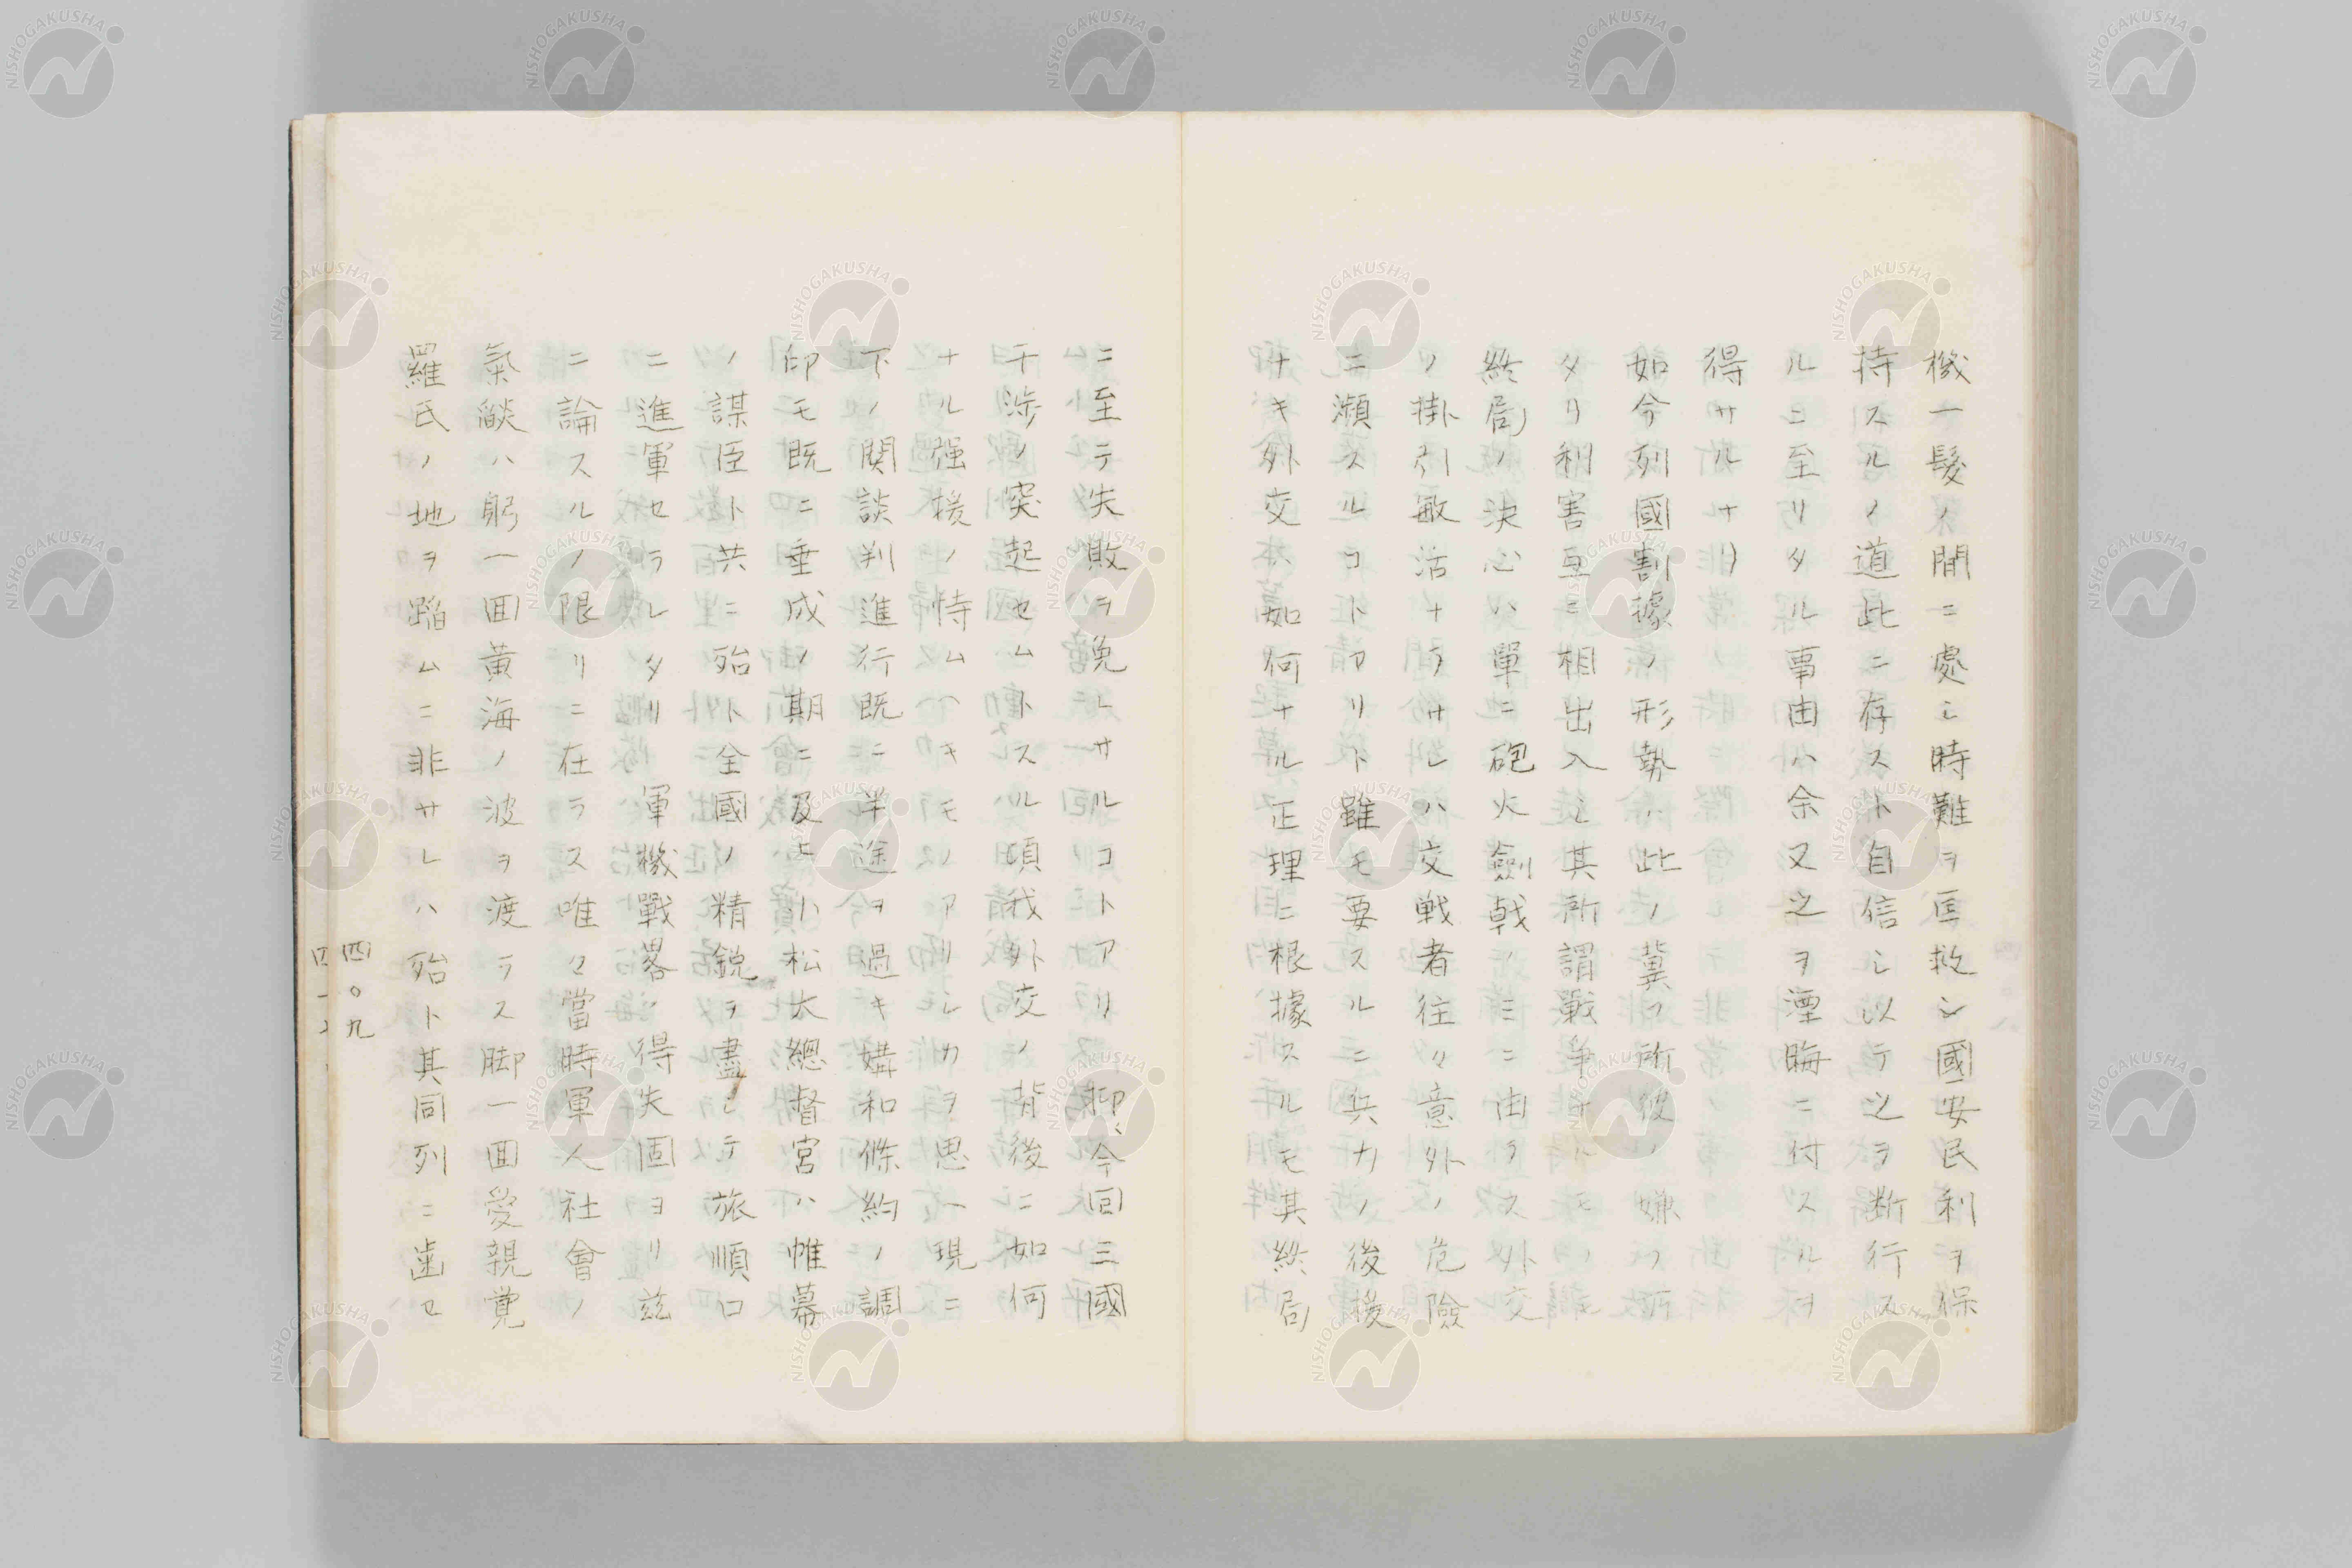 機一髮ノ間ニ處シ時難ヲ匡救シ國安民利ヲ保
持スルノ道此ニ存スト自信シ以テ之ヲ断行ス
ルニ至リタル事由ハ余又之ヲ湮晦ニ付スルヲ
得サルナリ
如今列國割據ノ形勢ハ此ノ冀フ所彼ノ嫌フ所
タリ利害互ニ相出入シ其所謂戰争ナルモノモ
終局ノ決心ハ單ニ砲火劍戟ノミニ由ラス外交
ノ掛引敏活ナラサレハ交戦者往々意外ノ危険
ニ瀕スルコトアリト雖モ要スルニ兵力ノ後援
ナキ外交ハ如何ナル正理ニ根據スルモ其終局
ニ至テ失敗ヲ免レサルコトアリ抑〻今回三國
干渉ノ突起セムトスル頃我外交ノ背後ニ如何
ナル强援ノ恃ムヘキモノアリシカヲ思ヘ現ニ
下ノ関談判進行既ニ半途ヲ過キ媾和條約ノ調
印モ既ニ垂成ノ期ニ及ヒ小松大總督宮ハ帷幕
ノ謀臣ト共ニ殆ト全國ノ精鋭ヲ盡シテ旅順口
ニ進軍セラレタリ軍機戰畧ノ得失固ヨリ玆
ニ論スルノ限リニ在ラス唯々當時軍人社會ノ
氣燄ハ躬一囬黄海ノ波ヲ渡ラス脚一囬愛親覚
羅氏ノ地ヲ蹈ムニ非サレハ殆ト其同列ニ歯セ
四〇九
NISHOGAKUSHA